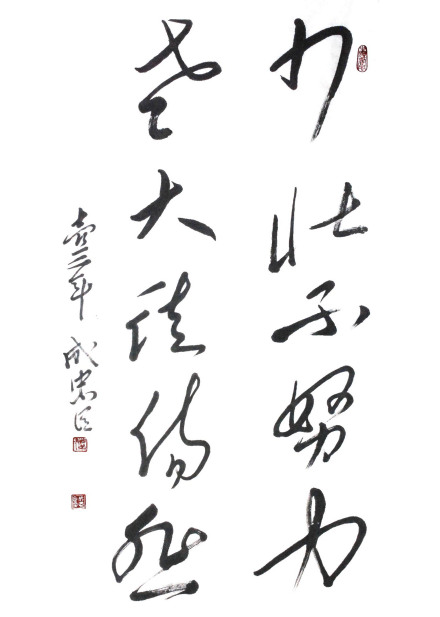 少壮不努力
老大徒伤悲
壹二年 成忠臣